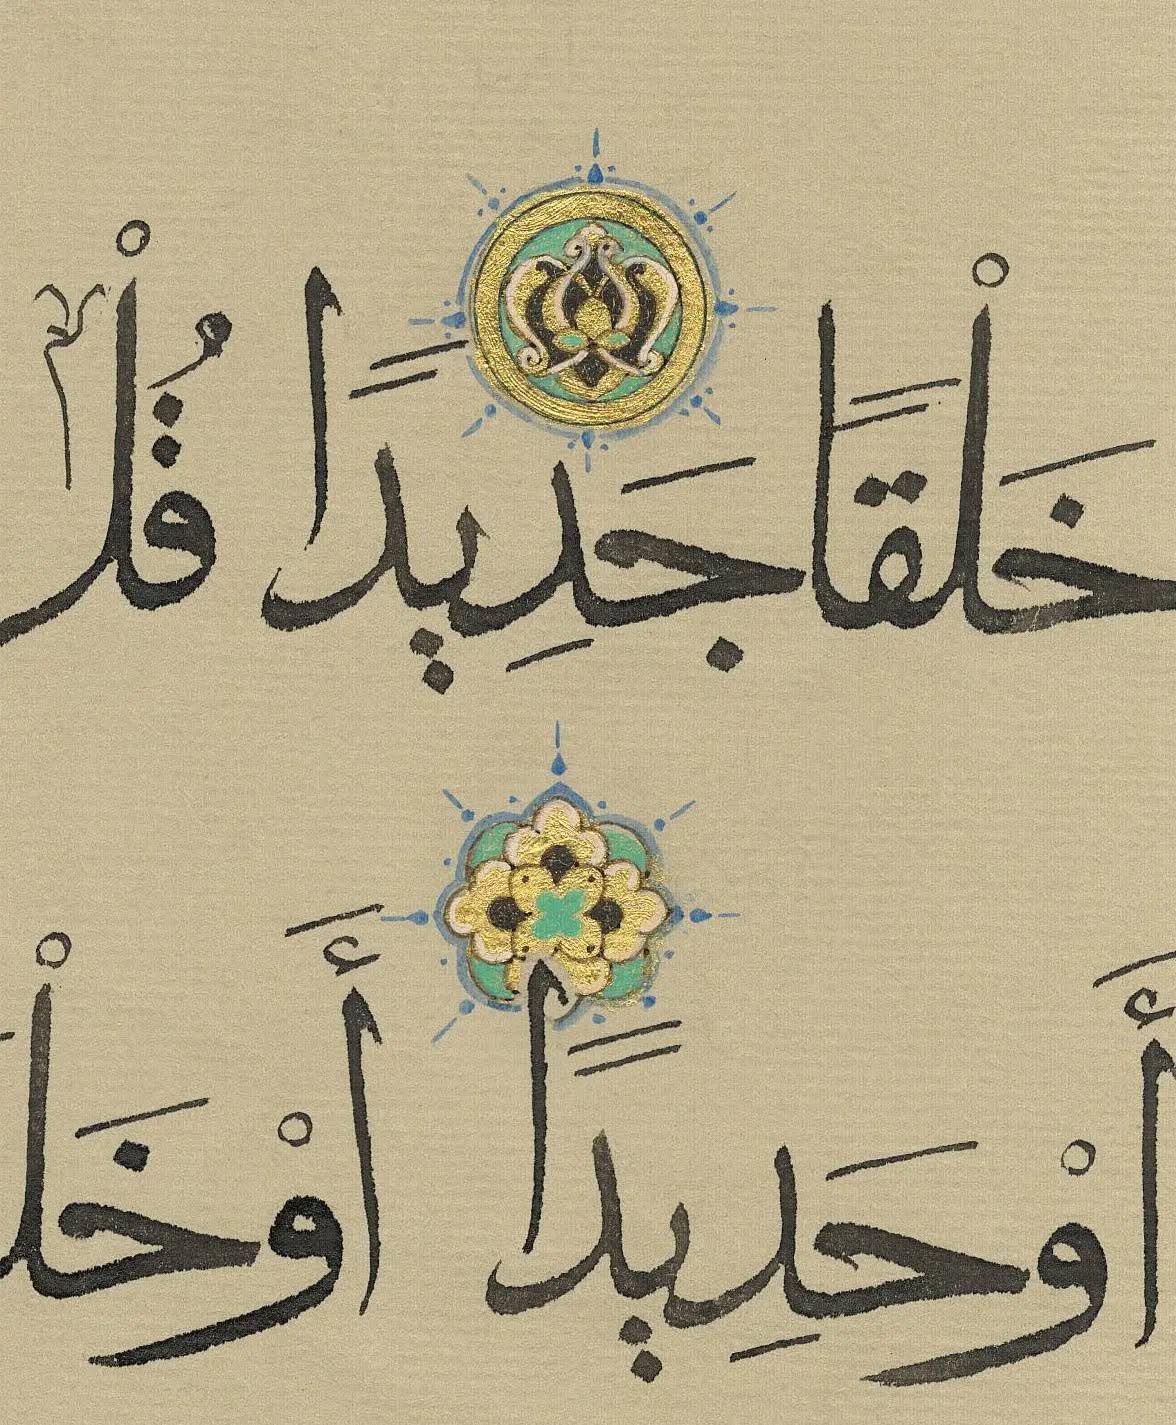 خَلْقًا جَدِيدًا قُلْ
أَوْ حَدِيدًا أَوْ خَلْ